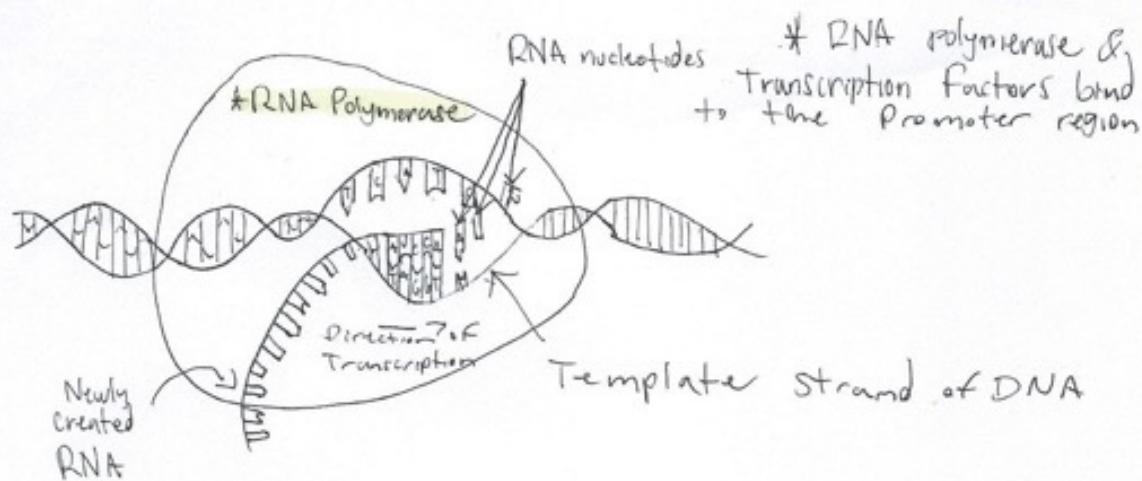 RNA nucleotides
* RNA polymerase &
Transcription factors bind
to the Promoter region
*RNA Polymerase
Direction of
Transcription
Template strand of DNA
Newly
created
RNA